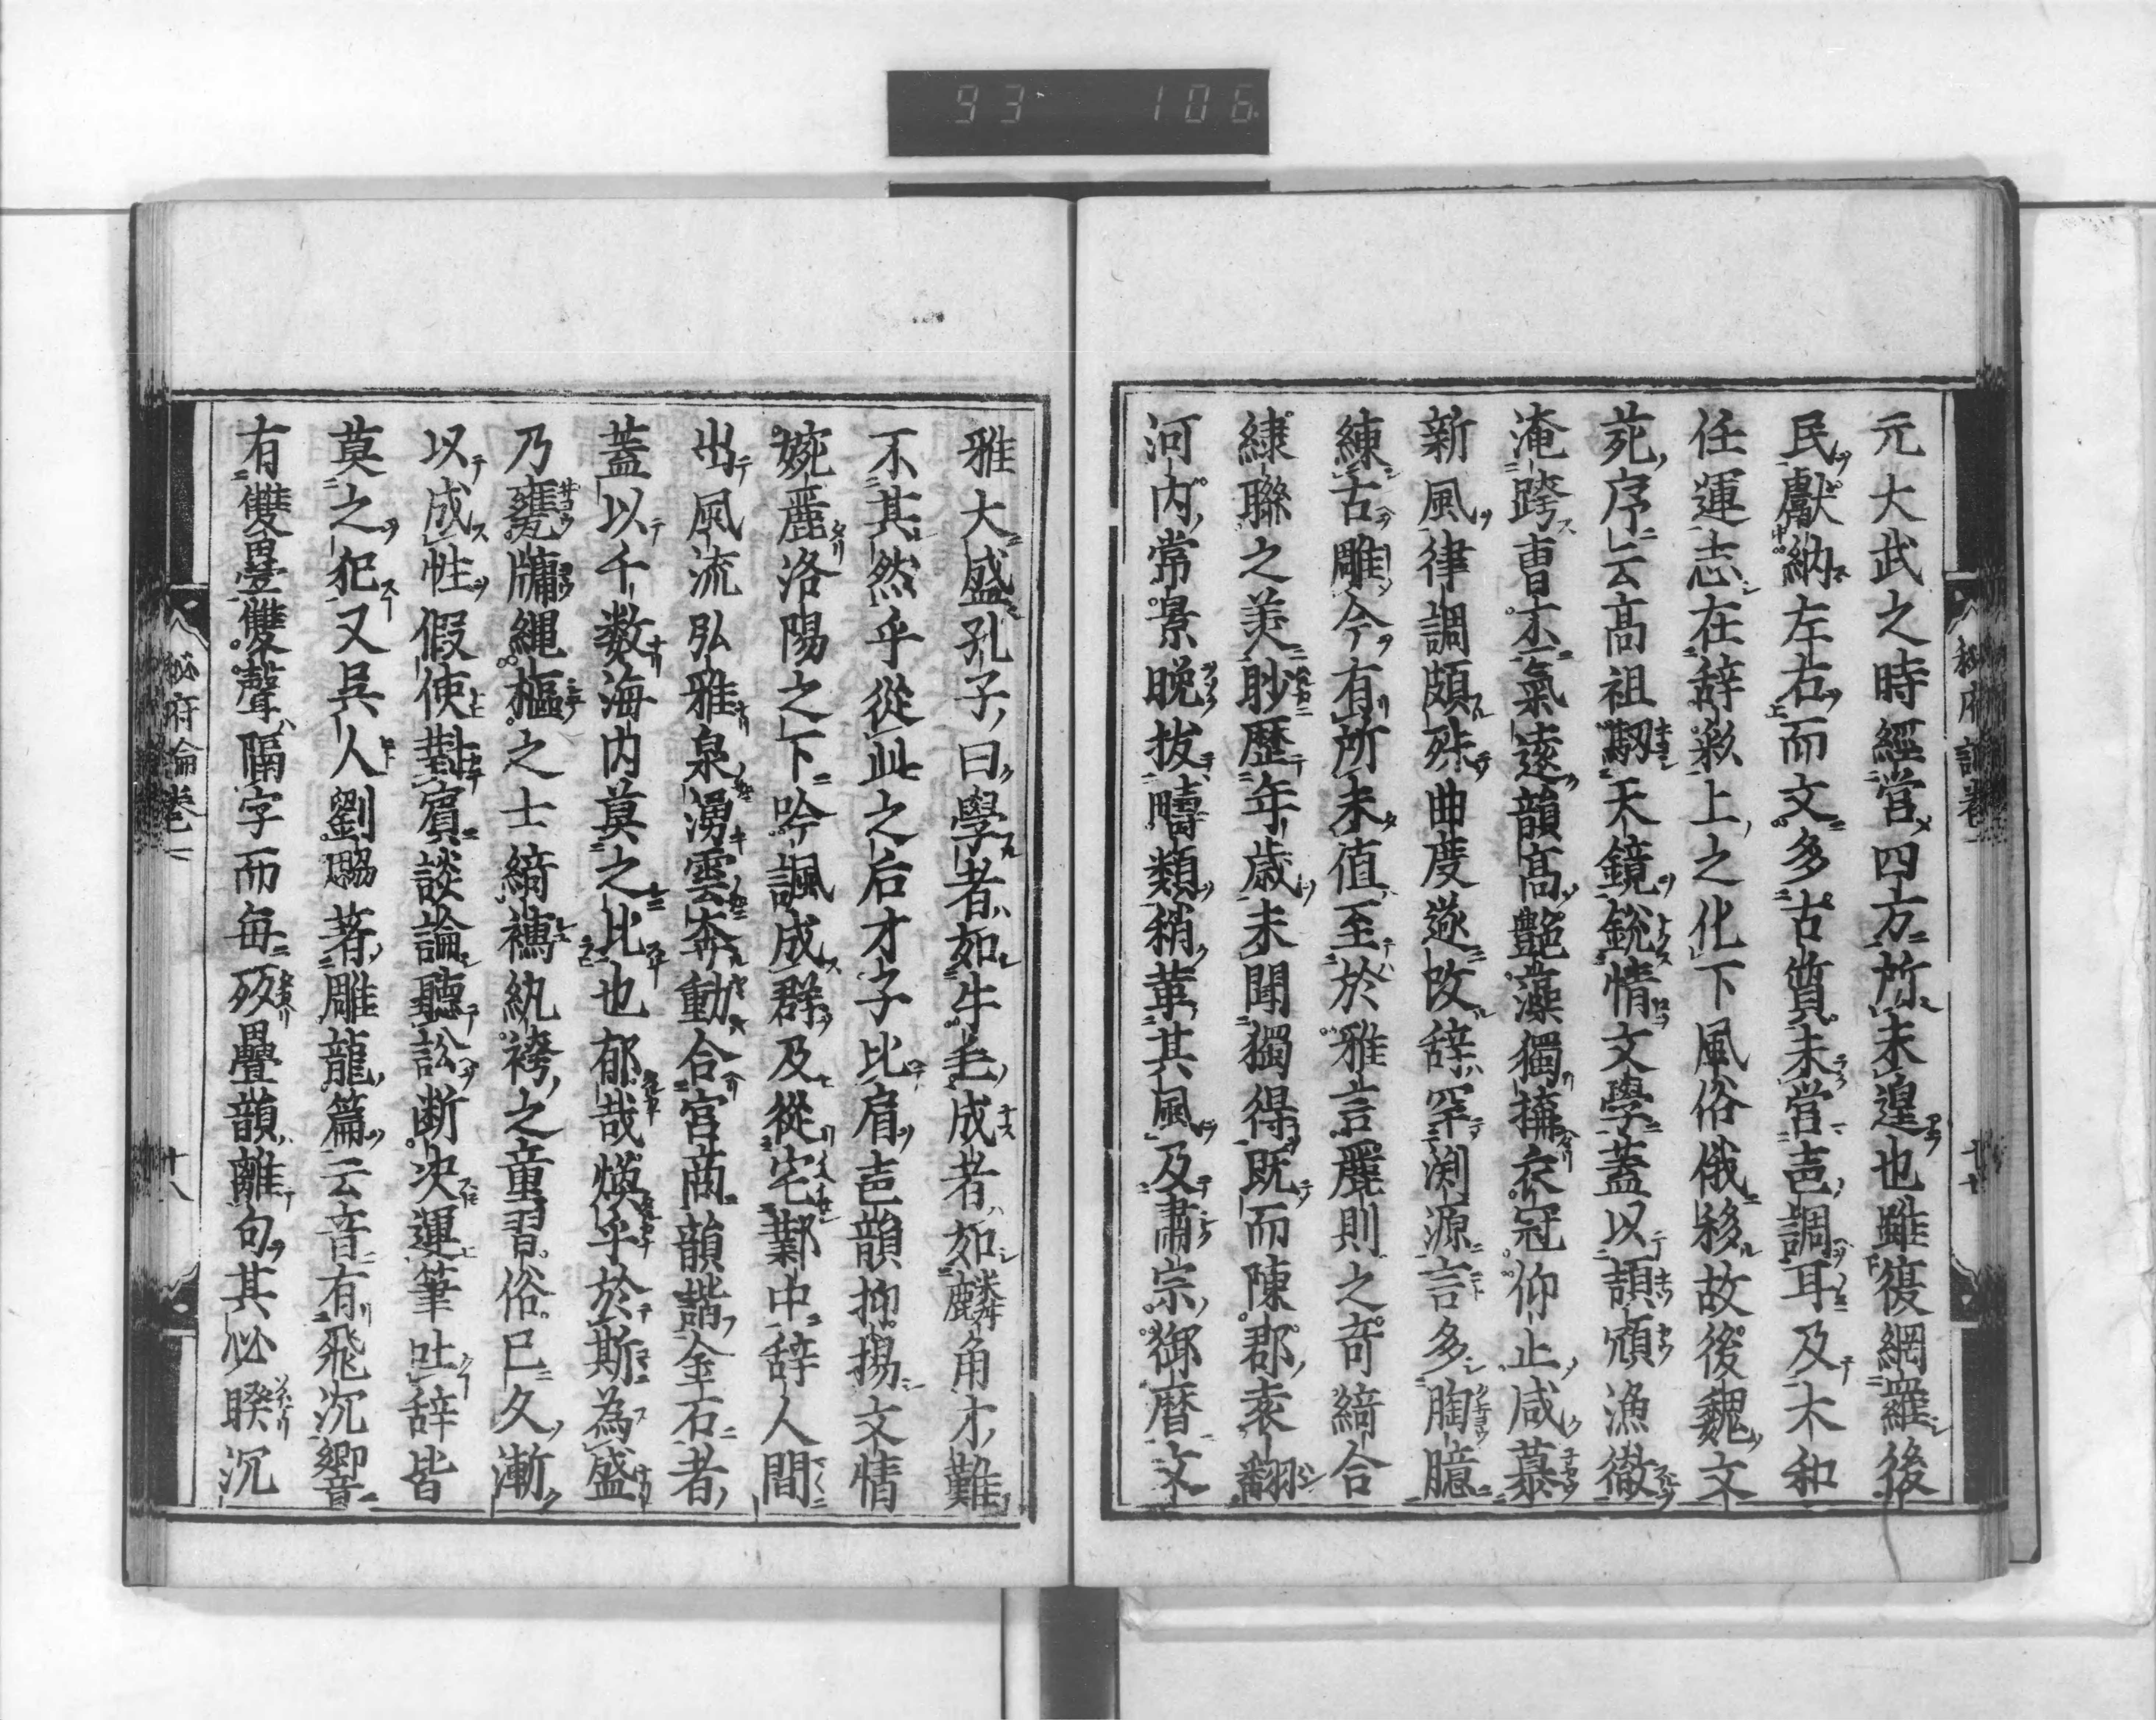 93 106
元大武之時經営四方所未遑也雖復網羅後
民獻納左右而文多古質未営声調耳及太和
任運志在辞彩上之化下風俗俄移故後魏文
苑序云高祖馭天鋭情文學蓋以頡頏漁徹
淹跨曹丕氣遠韻高艶藻獨搆衣冠仰止咸慕
新風律調頗殊曲度遂改辞罕渕源言多胸臆
練古雕今有所未値至於雅言麗則之奇綺合
繍聯之美眇歴年歳未聞獨得既而陳郡袁翻
河内常景晩抜疇類稍革其風及肅宗御暦文
秘府論巻一 十七
雅大盛孔子曰學者如牛毛成者如麟角才難
不其然乎從此之后才子比肩声韻抑揚文情
婉麗洛陽之下吟諷成群及從宅鄴中辞人間
出風流弘雅泉湧雲奔動合宮商韻諧金石者
蓋以千数海内莫之比也郁哉煥乎於斯為盛
乃甕牖縄樞之士綺襦紈袴之童習俗已久漸
以成性假使對賓談論聽訟断决運筆吐辞皆
莫之犯又呉人劉勰著雕龍篇云音有飛沉響
有雙疊雙聲隔字而毎舛疊韻離句其必睽沉
秘府論巻一 十八